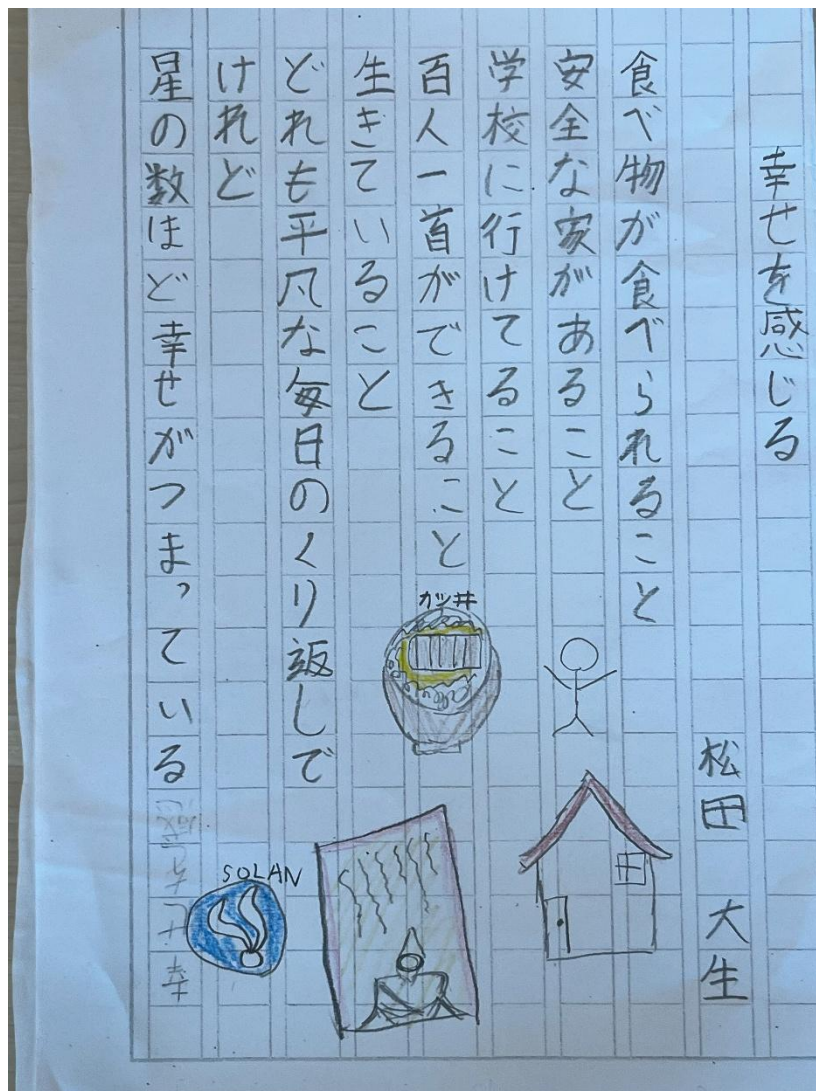 幸せを感じる
松田 大生
食べ物が食べられること
安全な家があること
学校に行けてること
百人一首ができること
生きていること
どれも平凡な毎日のくり返しで
けれど
星の数ほど幸せがつまっている
カツ丼
SOLAN